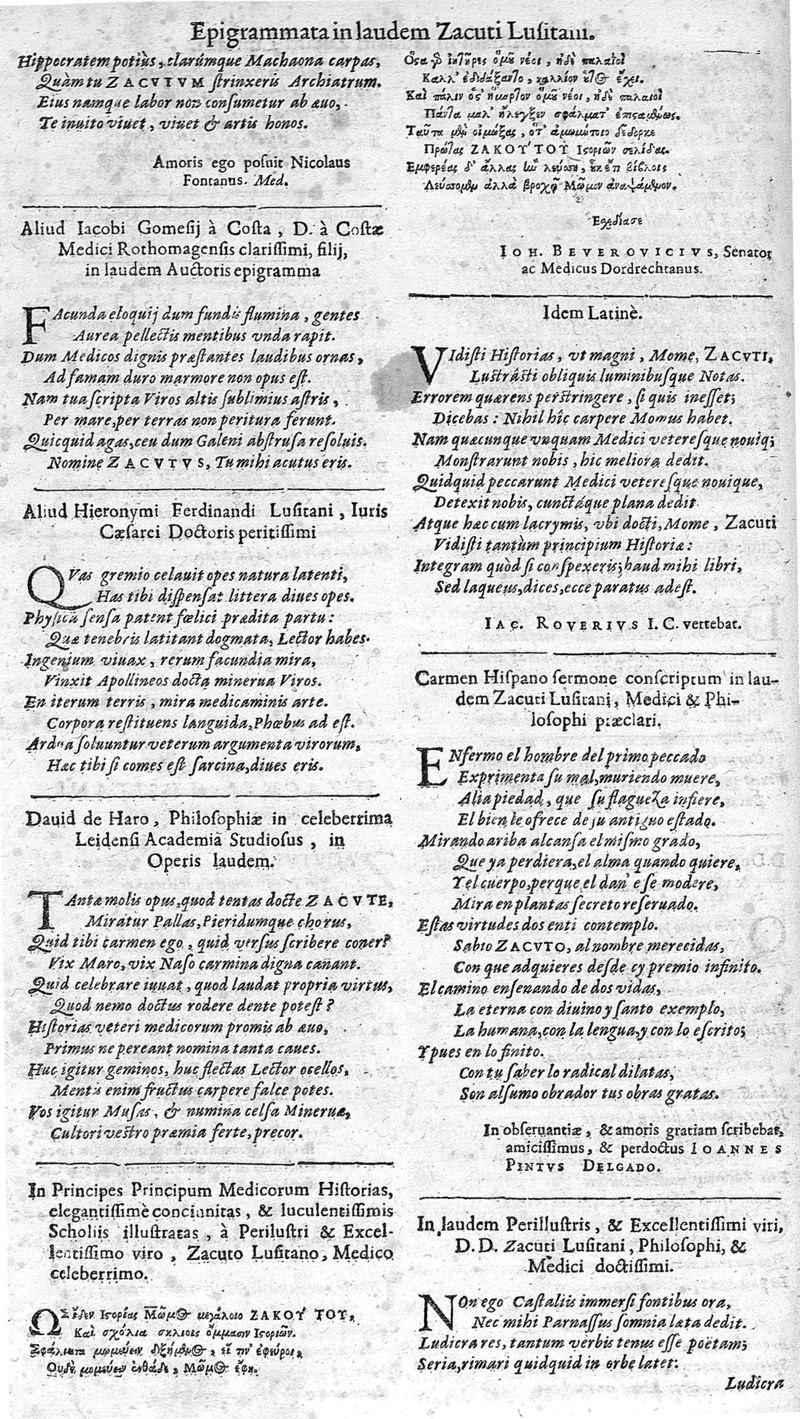 Epigrammata in laudem Zacuti Lusitani.
Hippocratem potiùs, clarúmque Machaona carpas,
Quàm tu ZACVTVM strinxeris Archiatrum.
Eius namque labor non consumetur ab æuo,
Te inuito viuet, viuet & artis honos.
Amoris ego posuit Nicolaus
Fontanus. Med.
Aliud Iacobi Gomesij à Costa, D. à Costæ
Medici Rothomagensis clarissimi, filij,
in laudem Auctoris epigramma
FAcunda eloquij dum fundis flumina, gentes
Aurea pellectis mentibus vnda rapit.
Dum Medicos dignis præstantes laudibus ornas,
Ad famam duro marmore non opus est.
Nam tua scripta Viros altis sublimius astris,
Per mare, per terras non peritura ferunt.
Quicquid agas, ceu dum Galeni abstrusa resoluis.
Nomine ZACVTVS, Tu mihi acutus eris.
Aliud Hieronymi Ferdinandi Lusitani, Iuris
Cæsarei Doctoris peritissimi
QVas gremio celauit opes natura latenti,
Has tibi dispensat littera diues opes.
Physica sensa patent fœlici prædita partu:
Quæ tenebris latitant dogmata, Lector habes.
Ingenium viuax, rerum facundia mira,
Vinxit Apollineos docta minerua Viros.
En iterum terris, mira medicaminis arte.
Corpora restituens languida, Phœbus ad est.
Ardua soluuntur veterum argumenta virorum,
Hac tibi si comes est sarcina, diues eris.
Dauid de Haro, Philosophiæ in celeberrima
Leidensi Academia Studiosus, in
Operis laudem.
TAntæ molis opus, quod tentas docte ZACVTE,
Miratur Pallas, Pieridumque chorus,
Quid tibi carmen ego, quid versus scribere coner?
Vix Maro, vix Naso carmina digna canant.
Quid celebrare iuuat, quod laudat propria virtus,
Quod nemo doctus rodere dente potest?
Historias veteri medicorum promis ab æuo,
Primus ne pereant nomina tanta caues.
Huc igitur geminos, huc flectas Lector ocellos,
Mentis enim fructus carpere falce potes.
Vos igitur Musas, & numina celsa Mineruæ,
Cultori vestro præmia ferte, precor.
In Principes Principum Medicorum Historias,
elegantissimè concinnitas, & luculentissimis
Scholiis illustratas, à Perillustri & Excel-
lentissimo viro, Zacuto Lusitano, Medico
celeberrimo.
ΖΑΚΟΥ ΤΟΥ,
Καὶ σχόλια
Ὅσα
νέοι, ἠδὲ παλαιοὶ
Καὶ πάλιν
νέοι, ἠδὲ παλαιοὶ
Πάντα μαλ'
Ταῦτα
Πρώτας ΖΑΚΟΥ ΤΟΥ Ἱστοριῶν σελίδας.
ἀλλὰ
IOH. BEVEROVICIVS, Senator
ac Medicus Dordrechtanus.
Idem Latinè.
VIdisti Historias, vt magni, Mome, ZACVTI,
Lustrásti obliquis luminibusque Notas.
Errorem quærens perstringere, si quis inesset;
Dicebas: Nihil hîc carpere Momus habet.
Nam quæcunque vnquam Medici veteresque nouiq;
Monstrarunt nobis, hic meliora dedit.
Quidquid peccarunt Medici veteresque nouique,
Detexit nobis, cunctáque plana dedit
Atque hæc cum lacrymis, vbi docti, Mome, Zacuti
Vidisti tantùm principium Historiæ:
Integram quòd si conspexeris; haud mihi libri,
Sed laqueus, dices, ecce paratus adest.
IAC. ROVERIVS I.C. vertebat.
Carmen Hispano sermone conscriptum in lau-
dem Zacuti Lusitani, Medici & Phi-
losophi præclari.
ENfermo el hombre del primo peccado
Exprimenta su mal, muriendo muere,
Alia piedad, que su flaqueza infiere,
El bien le ofrece de su antiguo estado.
Mirando ariba alcansa el mismo grado,
Que ya perdiera, el alma quando quiere,
Y el cuerpo, perque el dan' ese modere,
Mira en plantas secreto reseruado.
Estas virtudes dos enti contemplo.
Sabio ZACVTO, al nombre merecidas,
Con que adquieres desde cy premio infinito.
El camino ensenando de dos vidas,
La eterna con diuino y santo exemplo,
La humana, con la lengua, y con lo escrito;
Y pues en lo finito.
Con tu saber lo radical dilatas,
Son al sumo obrador tus obras gratas.
In obseruantiæ, & amoris gratiam scribebat,
amicissimus, & perdoctus IOANNES
PINTVS DELGADO.
In laudem Perillustris, & Excellentissimi viri,
D.D. Zacuti Lusitani, Philosophi, &
Medici doctissimi.
NOn ego Castaliis immersi fontibus ora,
Nec mihi Parnassus somnia lata dedit.
Ludicra res, tantum verbis tenus esse poëtam;
Seria, rimari quidquid in orbe latet:
Ludicra